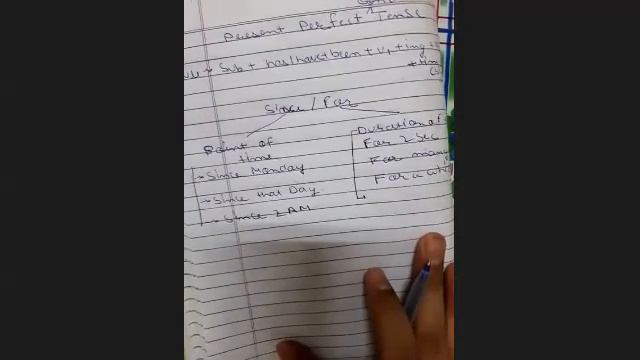 Present Perfect Tense
Sub + has/have + been + V1 + ing +
Since / For
Point of
time
Since Monday
Since that Day
Since 2 AM
Duration of
For 2 Sec
For many
For a